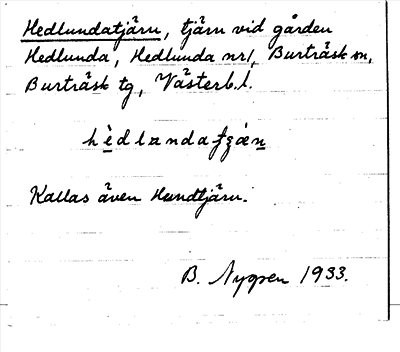 Hedlundatjärn, tjärn vid gården
Hedlunda, Hedlunda nr1, Burträsk sn,
Burträsk tg, Västerb. l.
Kallas även Hundtjärn.
B. Nygren 1933.